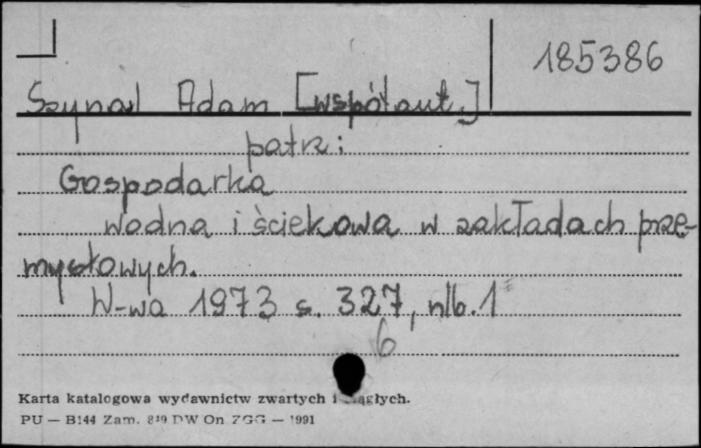 185386
Szynal Adam [współaut.]
patrz:
Gospodarka
wodna i ściekowa w zakładach prze-
mysłowych.
W-wa 1973 s. 327, nlb. 1
6
Karta katalogowa wydawnictw zwartych i ciągłych.
PU — B144 Zam. 819 DW On ZGG — 1991